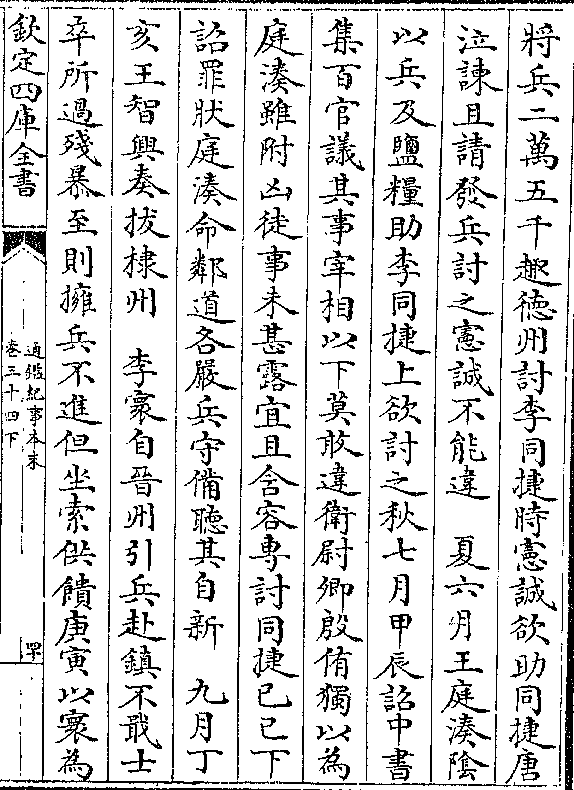 將兵二萬五千趣徳州討李同捷時憲誠欲助同捷唐
泣諫且請發兵討之憲誠不能違　夏六月王庭湊隂
以兵及鹽糧助李同捷上欲討之秋七月甲辰詔中書
集百官議其事宰相以下莫敢違衛尉卿殷侑獨以為
庭湊雖附凶徒事未甚露宜且含容専討同捷已巳下
詔罪狀庭湊命鄰道各嚴兵守備聽其自新　九月丁
亥王智興奏拔棣州　李寰自晉州引兵赴鎮不戢士
卒所過殘暴至則擁兵不進但坐索供饋庚寅以寰為
欽定四庫全書
通鑑紀事本末
卷三十四下
四十